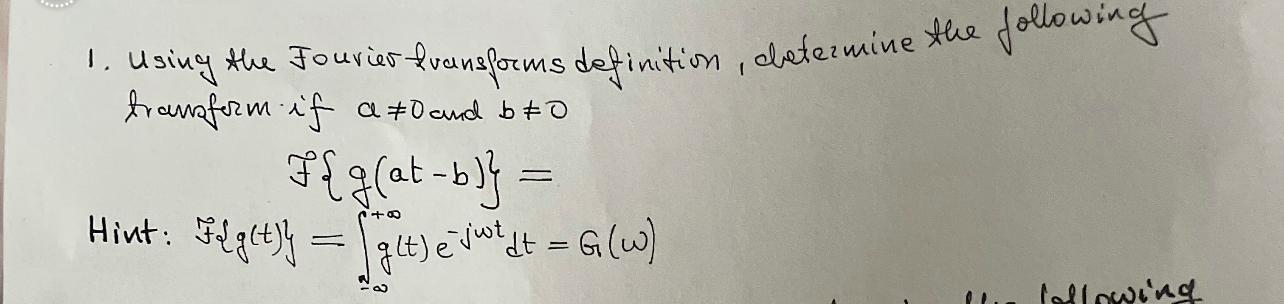 1. Using the Fourier transforms definition, determine the following
transform if a ≠ 0 and b ≠ 0
ℱ{g(at-b)} =
Hint: ℱ{g(t)} = ∫_{-∞}^{+∞} g(t) e^{-jωt} dt = G(ω)
following